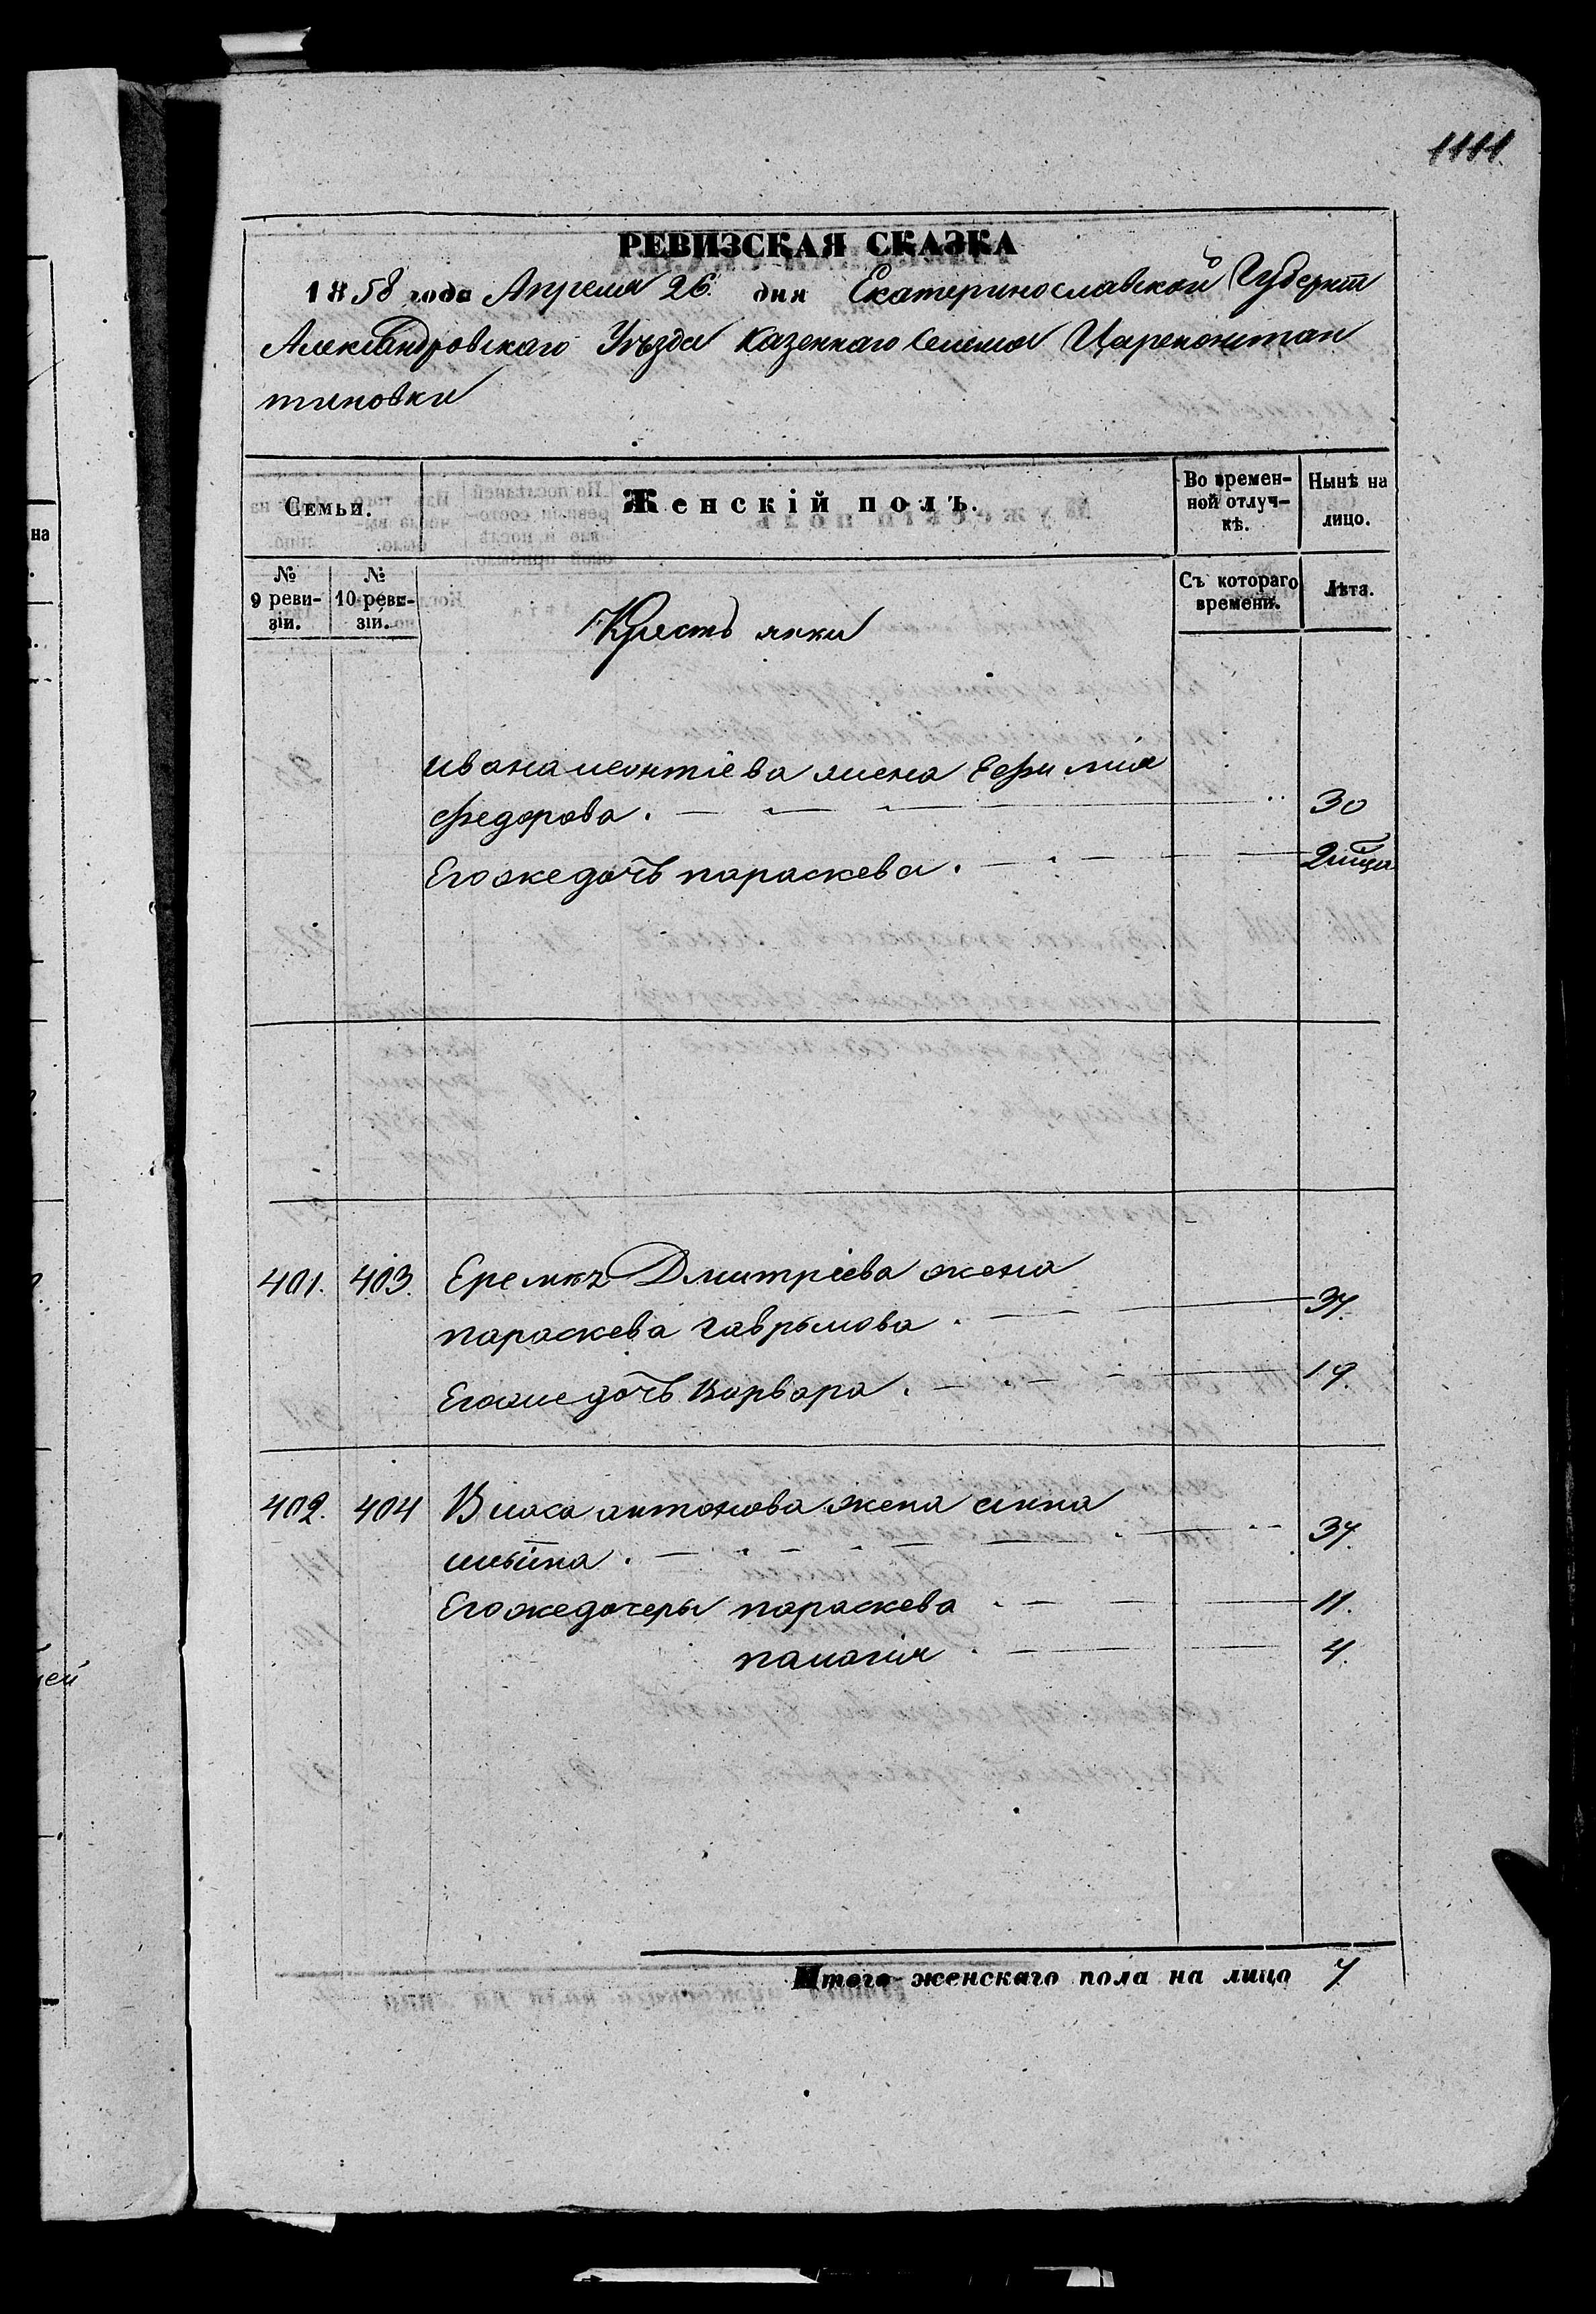 1111.
РЕВИЗСКАЯ СКАЗКА
1858 года Апреля 26. дня Екатеринославской Губерніи
Александровскаго Уѣзда Казеннаго Селенія Цареконстан
тиновки
Семьи. Женскій полъ. Во времен- Нынѣ на
ной отлуч- лицо.
кѣ.
№ № Съ котораго Лѣта.
9 реви- 10 реви- времени.
зіи. зіи.
Кресть янки
Ивана леонтіева жена Ефимія
федорова. 30
Егоже дочь параскева. 2 мѣца
401. 403. Еремѣя Дмитріева жена
параскева гаврилова. 37.
Егоже дочь Варвара. 19.
402. 404 Власа антонова жена анна
ильина. 37.
Егоже дочеры параскева 11.
палагия 4.
Итого женскаго пола на лицо 7